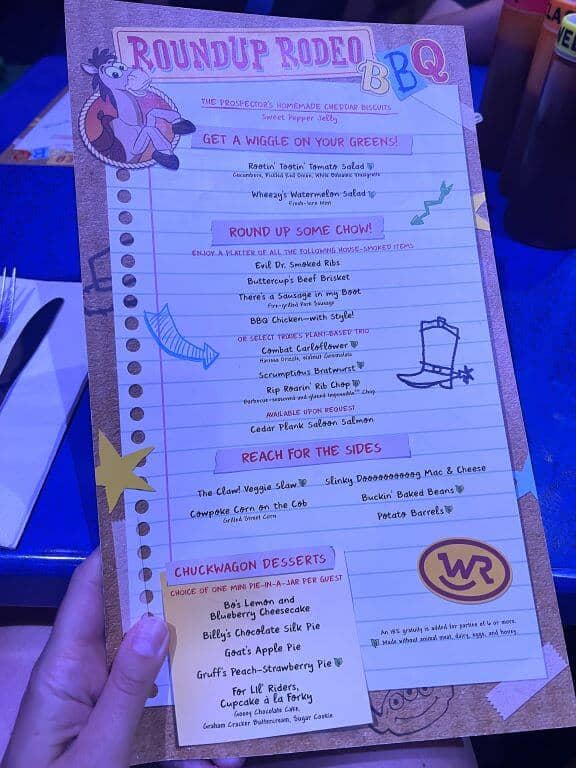 ROUNDUP RODEO
BBQ
THE PROSPECTOR'S HOMEMADE CHEDDAR BISCUITS
Sweet Pepper Jelly
GET A WIGGLE ON YOUR GREENS!
Rootin' Tootin' Tomato Salad
Cucumbers, Pickled Red Onion, White Balsamic Vinaigrette
Wheezy's Watermelon Salad
Fresh-torn Mint
ROUND UP SOME CHOW!
ENJOY A PLATTER OF ALL THE FOLLOWING HOUSE-SMOKED ITEMS
Evil Dr. Smoked Ribs
Buttercup's Beef Brisket
There's a Sausage in my Boot
Fire-grilled Pork Sausage
BBQ Chicken—with Style!
OR SELECT TRIXIE'S PLANT-BASED TRIO
Combat Carloflower
Harissa Drizzle, Walnut Gremolata
Scrumptious Bratwurst
Rip Roarin' Rib Chop
Barbecue-seasoned and glazed Impossible™ Chop
AVAILABLE UPON REQUEST
Cedar Plank Saloon Salmon
REACH FOR THE SIDES
The Claw! Veggie Slaw
Cowpoke Corn on the Cob
Grilled Street Corn
Slinky Doooooooooog Mac & Cheese
Buckin' Baked Beans
Potato Barrels
CHUCKWAGON DESSERTS
CHOICE OF ONE MINI PIE-IN-A-JAR PER GUEST
Bo's Lemon and
Blueberry Cheesecake
Billy's Chocolate Silk Pie
Goat's Apple Pie
Gruff's Peach-Strawberry Pie
For Lil' Riders,
Cupcake à la Forky
Gooey Chocolate Cake,
Graham Cracker Buttercream, Sugar Cookie
WR
An 18% gratuity is added for parties of 6 or more.
Made without animal meat, dairy, eggs, and honey.